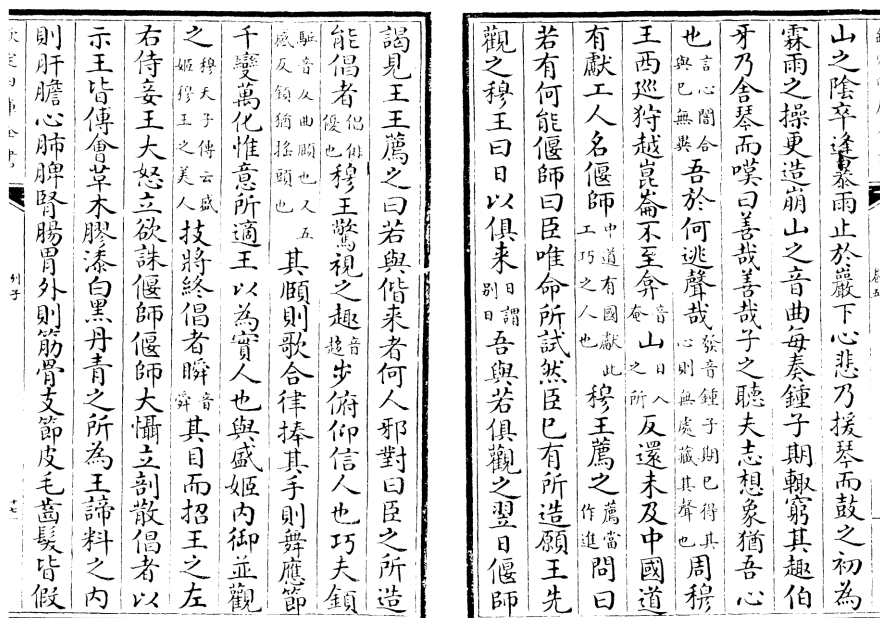 山之陰卒逢暴雨止於巖下心悲乃援琴而鼓之初為
霖雨之操更造崩山之音曲每奏鍾子期輒窮其趣伯
牙乃舍琴而嘆曰善哉善哉子之聽夫志想象猶吾心
也言心闇合與已無異吾於何逃聲哉發音鍾子期已得其心則無處藏其聲也周穆
王西巡狩越崑崙不至弇音奄山日入之所反還未及中國道
有獻工人名偃師中道有國獻此工巧之人也穆王薦之薦當作進問曰
若有何能偃師曰臣唯命所試然臣已有所造願王先
觀之穆王曰日以俱來日謂别日吾與若俱觀之翌日偃師
謁見王王薦之曰若與偕来者何人邪對曰臣之所造
能倡者倡俳優也穆王驚視之趣音趨步俯仰信人也巧夫顉
驅音反曲頤也又五感反顉猶搖頭也其頤則歌合律捧其手則舞應節
千變萬化惟意所適王以為實人也與盛姬内御並觀
之穆天子傳云盛姬穆王之美人技將終倡者瞬音舜其目而招王之左
右侍妾王大怒立欲誅偃師偃師大懾立剖散倡者以
示王皆傅會草木膠漆白黑丹青之所為王諦料之内
則肝膽心肺脾腎腸胃外則筋骨支節皮毛齒髮皆假
列子
十七